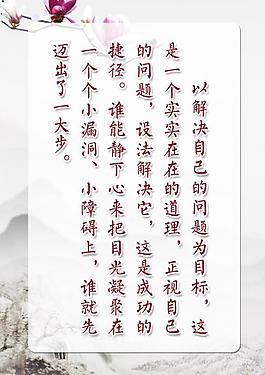 以解决自己的问题为目标，这
是一个实实在在的道理，正视自己
的问题，设法解决它，这是成功的
捷径。谁能静下心来把目光凝聚在
一个个小漏洞、小障碍上，谁就先
迈出了一大步。